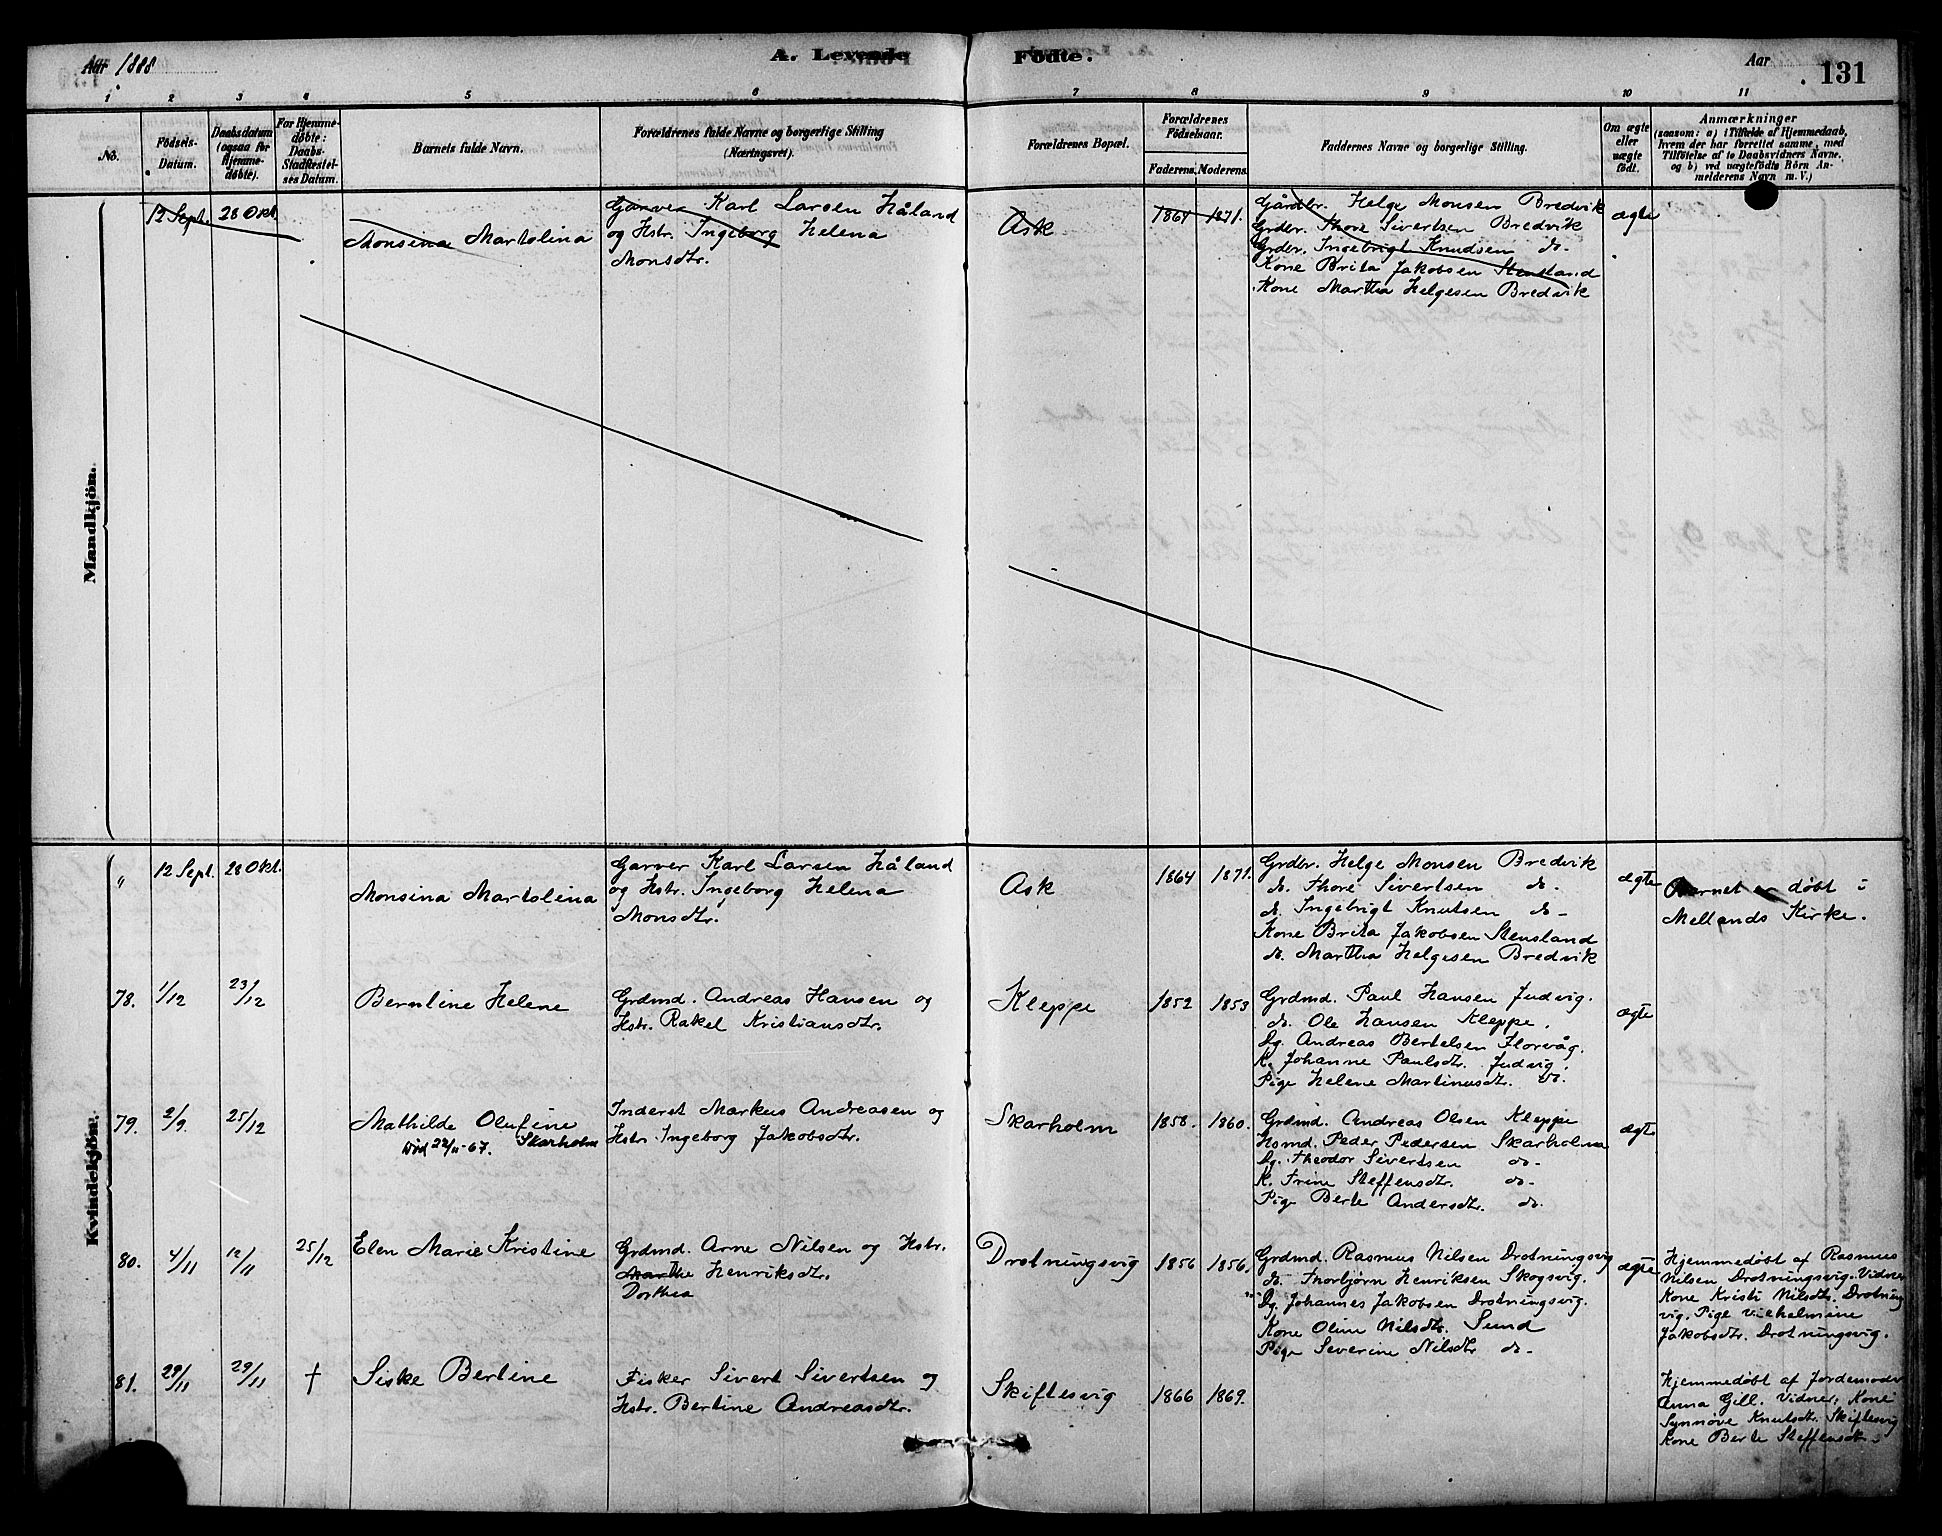 Aar 1888
A. Levende
Födte.
Aar
131
1 2 3 4 5 6 7 8 9 10 11
No.
Födsels-Datum.
Daabsdatum (ogsaa for Hjemmedöbte).
For Hjemmedöbte: Daabs-Stadfæstelses Datum.
Barnets fulde Navn.
Forældrenes fulde Navne og borgerlige Stilling (Næringsvei).
Forældrenes Bopæl.
Forældrenes Födselsaar.
Faderens. Moderens.
Faddernes Navne og borgerlige Stilling.
Om ægte eller uægte födt.
Anmærkninger
(saasom: a) i Tilfælde af Hjemmedaab,
hvem der har forrettet samme, med
Tilföielse af to Daabsvidners Navne,
og b) ved uægtefödte Börn An-
melderens Navn m. V.)
Mandkjön.
12 Sept. 28 Okt.
Monsina Martolina
Garver Karl Larsen Håland
og Hstr. Ingeborg Helena
Monsdtr.
Ask
1864 1871.
Gårdbr. Helge Monsen Bredvik
Grdbr. Thore Sivertsen Bredvik
Grdbr. Ingebrigt Knudsen do-
Kone Brita Jakobsen Stensland
Kone Martha Helgesen Bredvik
ægte
Kvindekjön.
" 12 Sept. 28 Okt.
Monsina Martolina
Garver Karl Larsen Håland
og Hstr. Ingeborg Helena
Monsdtr.
Ask
1864 1871.
Grdbr. Helge Monsen Bredvik
do. Thore Sivertsen do-
do. Ingebrigt Knutsen do-
Kone Brita Jakobsen Stensland
do. Martha Helgesen Bredvik
ægte
Barnet er døbt i
Mellands Kirke.
78. 1/12 23/12
Berntine Helene
Grdmd. Andreas Hansen og
Hstr. Rakel Kristiansdtr.
Kleppe
1852 1853
Grdmd. Paul Hansen Judvig.
do. Ole Hansen Kleppe.
Ug. Andreas Bertelsen Florvåg.
K. Johanne Paulsdtr. Judvig.
Pige Helene Martinusdtr. do.
ægte
79. 2/9 25/12
Mathilde Olufine
Død 22/11-67. Skarholm
Inderst Markus Andreasen og
Hstr. Ingeborg Jakobsdtr.
Skarholm
1858. 1860.
Grdmd. Andreas Olsen Kleppe
Hsmd. Peder Pedersen Skarholm
Ug. Theodor Sivertsen do-
K. Trine Steffensdtr. do-
Pige Berte Andersdtr. do.
ægte
80. 4/11 12/11 25/12
Elen Marie Kristine
Grdmd. Arne Nilsen og Hstr.
Marthe Henriksdtr.
Dorthea
Drotningsvig
1856 1856.
Grdmd. Rasmus Nilsen Drotningsvig
do- Thorbjørn Henriksen Skogsvig.
Ug. Johannes Jakobsen Drotningsvig.
Kone Oline Nilsdtr. Sund
Pige Severine Nilsdtr do-
ægte
Hjemmedøbt af Rasmus
Nilsen Drotningsvig. Vidner
Kone Kristi Nilsdtr. Drotning
vig, Pige Vilhelmine
Jakobsdtr. Drotningsvig.
81. 29/11 29/11 †
Siske Bertine
Fisker Sivert Sivertsen og
Hstr. Bertine Andreasdtr.
Skiftesvig
1866 1869.
Hjemmedøbt af Jordemoder
Anna Gill. Vidner, Kone
Synnøve Knutsdtr. Skiftesvig
Kone Berte Steffensdtr.